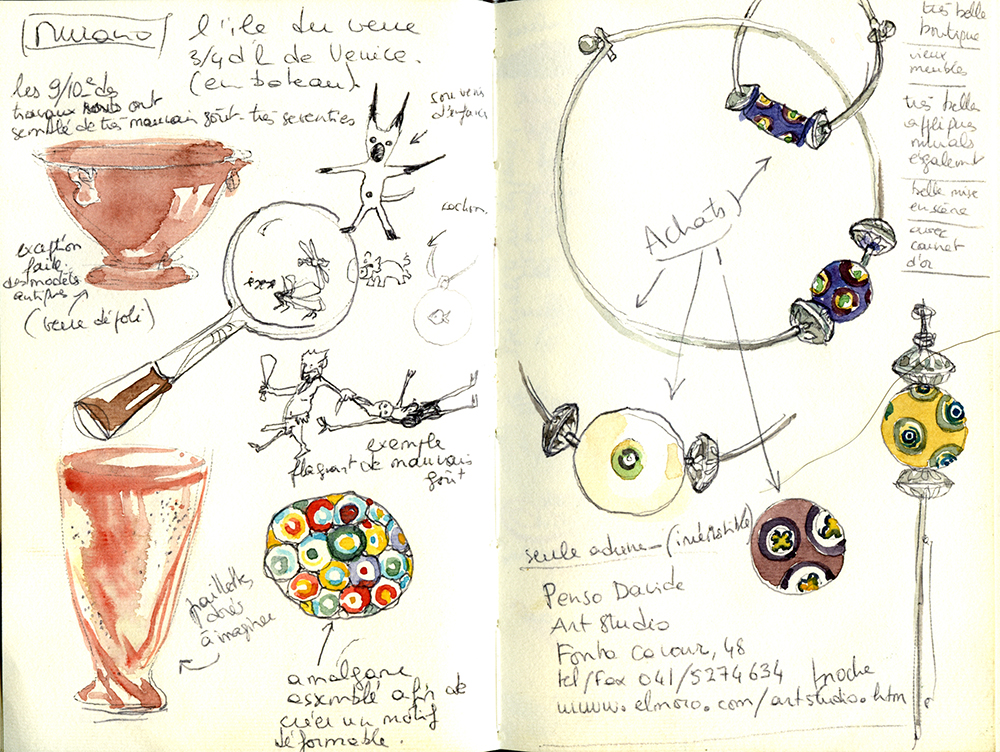 Murano
l'île du verre
3/4 d'h de Venice.
(en bateau)
les 9/10e des
travaux ont
semblé de très mauvais goût - très seventies
souvenirs
d'enfance
cochon
exception
faite
des modèles
antiques
(verre dépoli)
exemple
flagrant de mauvais
goût
paillettes
dorés
à imaginer
amalgame
assemblé afin de
créer un motif
déformable.
très belle
boutique
vieux
meubles
très belles
appliques
murals
également
belle mise
en scène
avec
carnet
d'or
Achats
seule adresse - (irrésistible)
Penso Davide
Art Studio
Fonta Cavour, 48
tel/fax 041/5274634
broche
wwww.elmoro.com/artstudio.htm